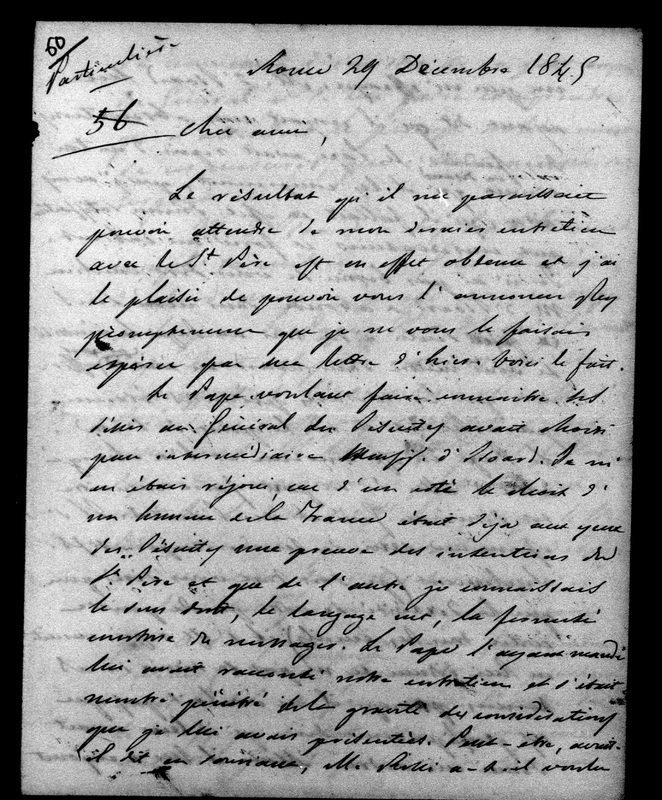 60
Particulière
Rome 29 Décembre 1845
56 cher ami,
Le résultat qu'il me paraissait
pouvoir attendre de mon dernier entretien
avec le St Père est en effet obtenu et j'ai
le plaisir de pouvoir vous l'annoncer plus
promptement que je ne vous le faisais
espérer par ma lettre d'hier. Voici le fait.
Le Pape voulant faire connaître ses
désirs au Général des Jésuites avait choisi
pour intermédiaire Monsig. d'Isoard. Je m'
en étais réjoui, car d'un côté le choix d'
un homme de la France était déjà aux yeux
des Jésuites une preuve des intentions du
St Père et que de l'autre je connaissais
le sens droit, le langage net, la fermeté
du messager. Le Pape l'ayant mandé
lui avait raconté notre entretien et s'était
montré pénétré de la gravité des considérations
que je lui avais présentées. Peut-être, avait-
il dit en souriant, M. Rossi a-t-il voulu